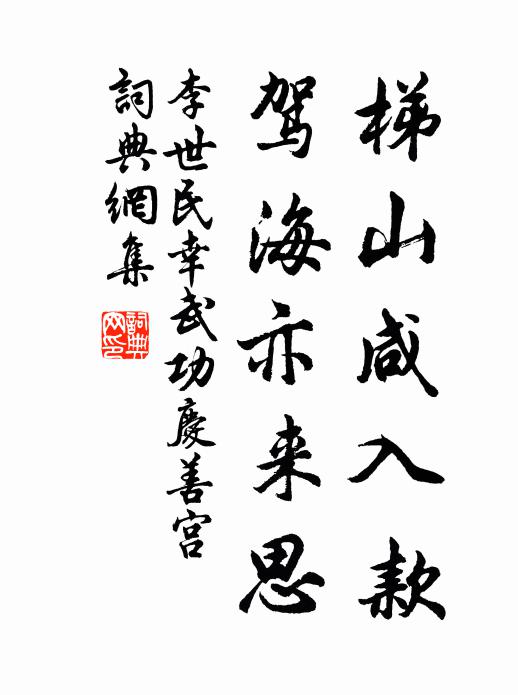 梯山咸入款
驾海亦来思
李世民幸武功慶善宫
詞典網集
詞典
网印